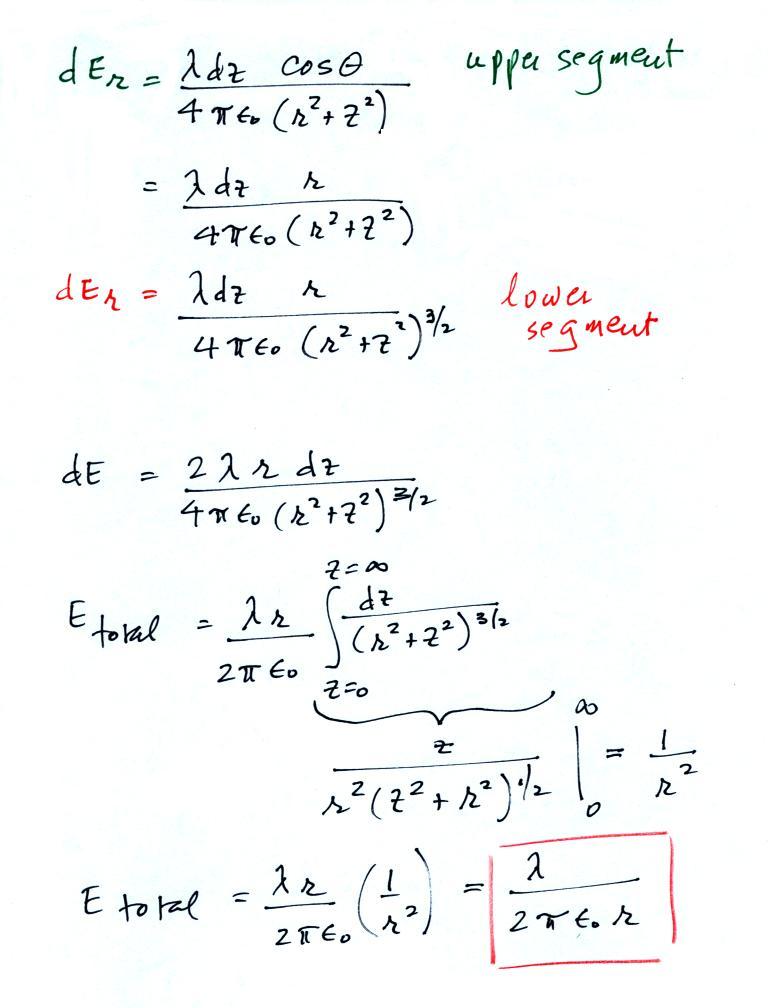 dE_r = λdz cosθ / 4πε₀(r²+z²) upper segment
= λdz r / 4πε₀(r²+z²)
dE_r = λdz r / 4πε₀(r²+z²)^3/2 lower segment
dE = 2λr dz / 4πε₀(r²+z²)^3/2
E total = λr / 2πε₀ ∫_{z=0}^{z=∞} dz / (r²+z²)^3/2
z / r²(z²+r²)^1/2 |_0^∞ = 1 / r²
E total = λr / 2πε₀ (1 / r²) = λ / 2πε₀r